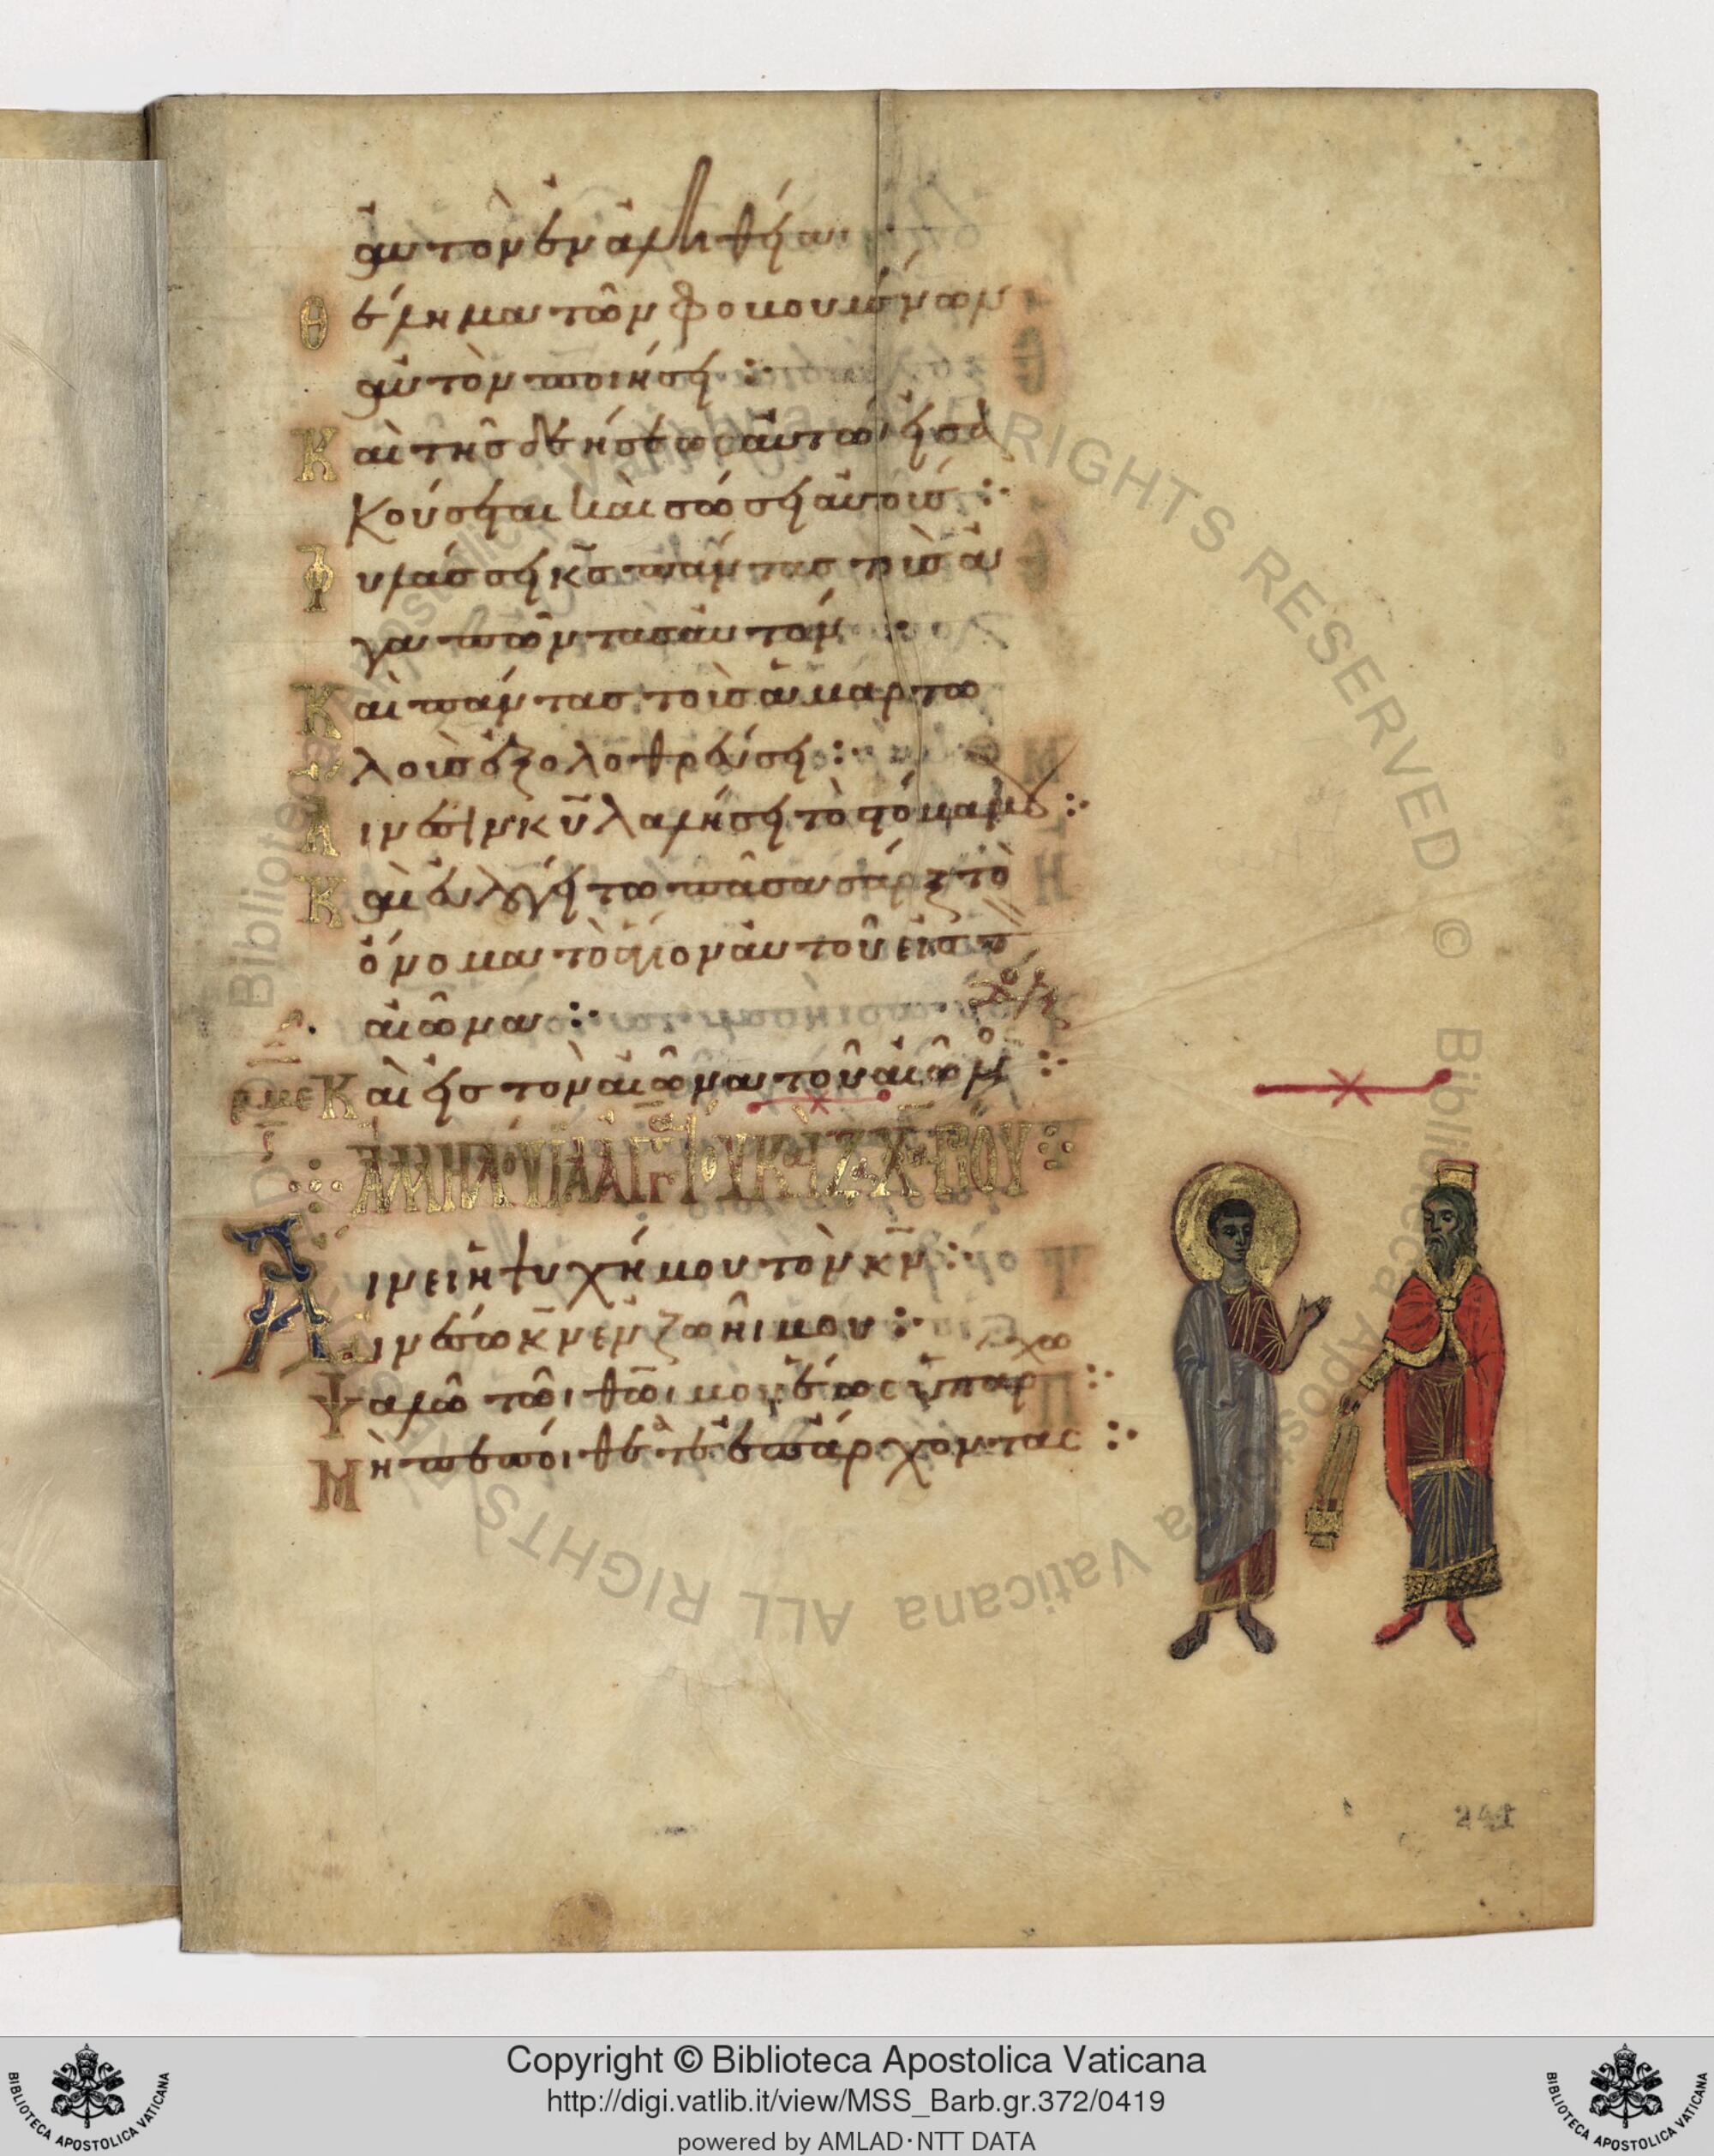 αὐτὸν ἐν ἀληθεία·
Θέλημα τῶν φοβουμένων
αὐτὸν ποιήσει :·
Καὶ τῆς δεήσεως αὐτῶν εἰσα
κούσεται καὶ σώσει αὐτούς :·
Φυλάσσει κ̅ς̅ πάντας τοὺς ἀ
γαπῶντας αὐτόν
Καὶ πάντας τοὺς ἁμαρτω
λοὺς ἐξολοθρεύσει :·
Αἴνεσιν κ̅υ̅ λαλήσει τὸ στόμα μου :·
Καὶ εὐλογείτω πᾶσα σάρξ τὸ
ὄνομα τὸ ἅγιον αὐτοῦ εἰς τὸν
αἰῶνα :·
ρμε Καὶ εἰς τὸν αἰῶνα τοῦ αἰῶνος :·
ΑΛΛΗΛΟΥΙΑ ΑΓΓΑΙΟΥ ΚΑΙ ΖΑΧΑΡΙΟΥ
Αἴνει ἡ ψυχή μου τὸν κ̅ν̅ :·
Αἰνέσω κ̅ν̅ ἐν ζωῆι μου :·
Ψαλῶ τῶι θ̅ῶ̅ι μου ἕως ὑπάρχω :·
Μὴ πεποίθατε ἐπ' ἄρχοντας :·
241
ALL RIGHTS RESERVED © Biblioteca Apostolica Vaticana ALL RIGHTS RESERVED © Biblioteca Apostolica Vaticana
Copyright © Biblioteca Apostolica Vaticana
http://digi.vatlib.it/view/MSS_Barb.gr.372/0419
powered by AMLAD·NTT DATA
BIBLIOTECA APOSTOLICA VATICANA
BIBLIOTECA APOSTOLICA VATICANA